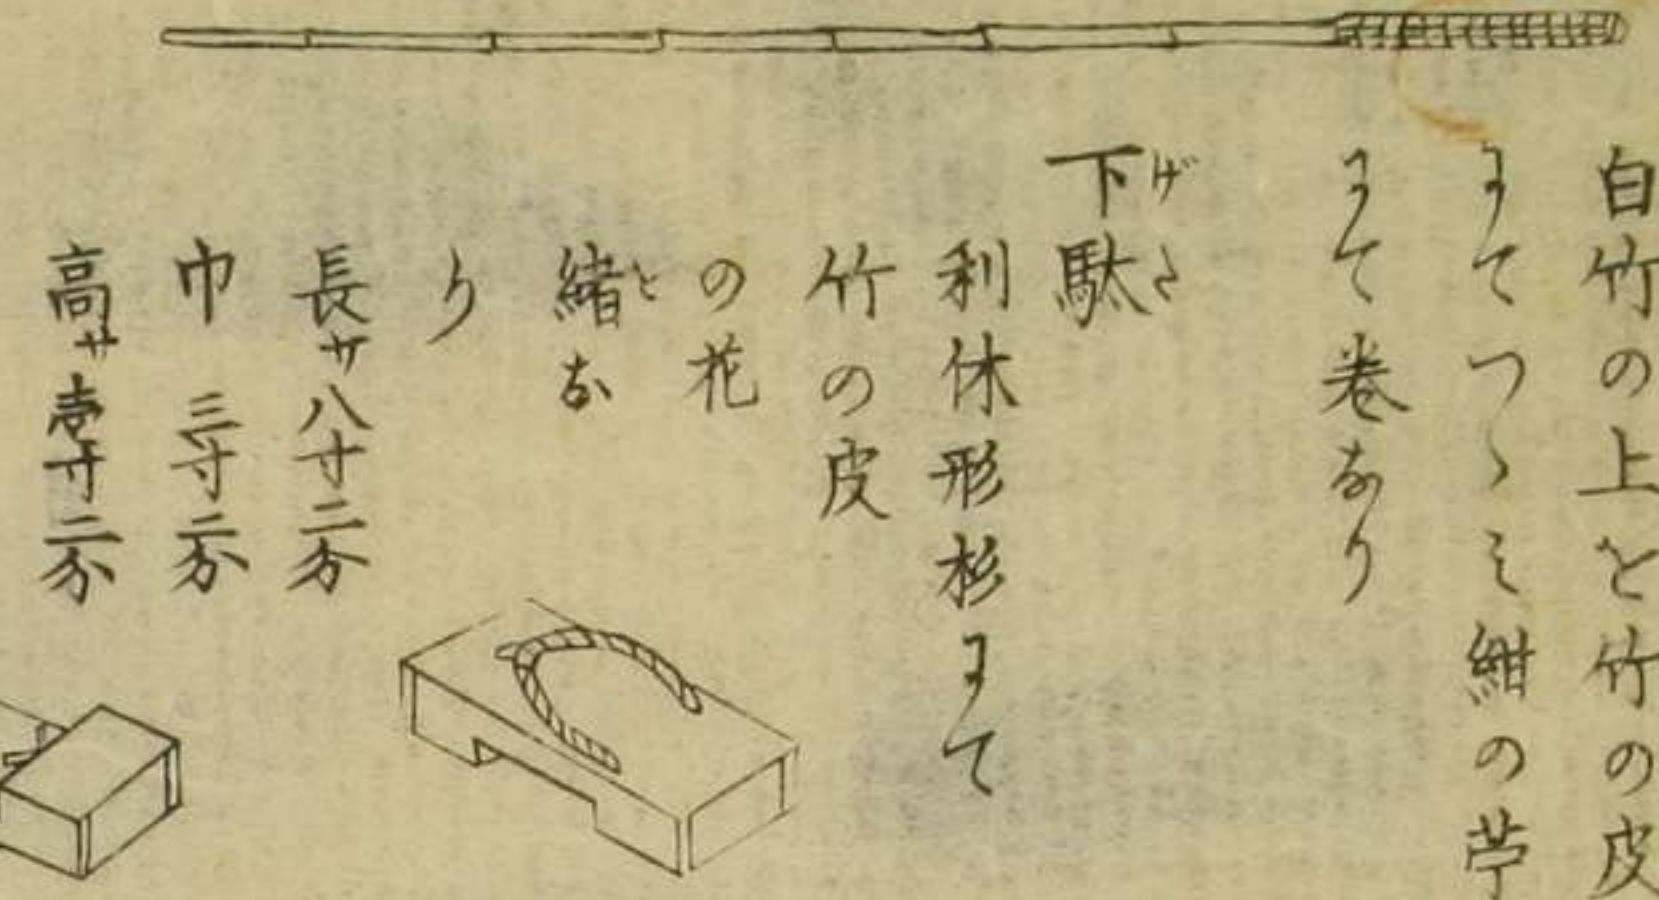 白竹の上を竹の皮
にてつゝミ紺の苧
にて巻なり
下駄
げた
利休形杉にて
竹の皮
の花
緒な
を
り
長サ八寸二分
巾 三寸二分
高サ壱寸二分